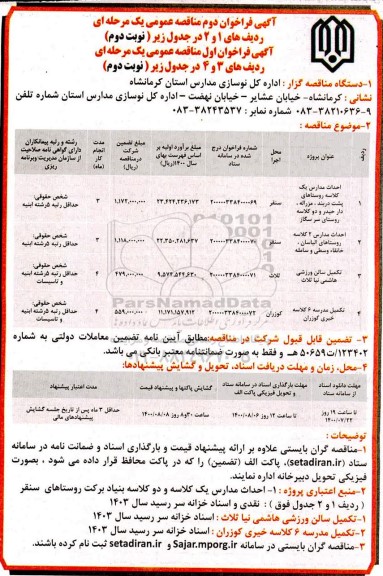 آگهی فراخوان دوم مناقصه عمومی یک مرحله ای
ردیف های ۱ و ۲ در جدول زیر ( نوبت دوم )
آگهی فراخوان اول مناقصه عمومی یک مرحله ای
ردیف های ۳ و ۴ در جدول زیر ( نوبت دوم )
۱-دستگاه مناقصه گزار : اداره کل نوسازی مدارس استان کرمانشاه
نشانی : کرمانشاه- خیابان عشایر – خیابان نهضت – اداره کل نوسازی مدارس استان شماره تلفن
۹-۰۸۳-۳۸۲۱۰۶۳۶ شماره نمابر : ۰۸۳-۳۸۲۴۳۵۳۷
۲-موضوع مناقصه :
ردیف
عنوان پروژه
محل اجرا
شماره فراخوان درج شده در سامانه ستاد
مبلغ برآورد اولیه بر اساس فهرست بهای سال ۱۴۰۰(ریال)
مبلغ تضمین درمناقصه (ریال)
مدت انجام کار (ماه)
رشته و رتبه پیمانکاران دارای گواهی نامه صلاحیت از سازمان مدیریت وبرنامه ریزی
۱
احداث مدارس یک کلاسه روستاهای پشت دربند ، مزرانه ، دار حیدر و دو کلاسه روستای سر سگاز
سنقر
۲۳,۴۲۴,۲۳۶,۱۷۳
۱,۱۷۲,۰۰۰,۰۰۰
۳
شخص حقوقی: حداقل رتبه ۵رشته ابنیه
۲
احداث مدارس ۲ کلاسه روستاهای الیاسان ، خانقاه وسطی و سامله
سنقر
۲۲,۳۵۰,۲۸۱,۶۳۷
۱,۱۱۸,۰۰۰,۰۰۰
۳
شخص حقوقی: حداقل رتبه ۵رشته ابنیه
۳
تکمیل سالن ورزشی هاشمی نیا ثلاث
ثلاث
۹,۵۷۲,۵۴۶,۶۳۰
۴۷۹,۰۰۰,۰۰۰
۴
شخص حقوقی: حداقل رتبه ۵رشته ابنیه و تاسیسات
۴
تکمیل مدرسه ۶ کلاسه خیری کوزران
کوزران
۱۱,۱۷۱,۱۵۷,۹۱۲
۵۵۹,۰۰۰,۰۰۰
۴
شخص حقوقی: حداقل رتبه ۵رشته ابنیه و تاسیسات
ParsNamadData
۳- تضمین قابل قبول شرکت در مناقصه:مطابق آیین نامه تضمین معاملات دولتی به شماره
۱۲۳۴۰۲/ت۵۰۶۵۹ هـ و فقط به صورت ضمانتنامه معتبر بانکی می باشد.
۴-محل، زمان و مهلت دریافت اسناد، تحویل و گشایش پیشنهادها:
مهلت دانلود اسناد از سامانه ستاد
مهلت بارگذاری اسناد در سامانه ستاد و تحویل فیزیکی پاکت الف
گشایش پاکتها و پیشنهاد قیمت
مدت اعتبار پیشنهاد
تا ساعت ۱۹ روز ۱۴۰۰/۰۷/۲۲
تا ساعت ۱۴ روز ۱۴۰۰/۰۸/۰۶
ساعت ۸و۳۰ روز ۱۴۰۰/۰۸/۰۸
حداقل ۳ ماه پس از تاریخ جلسه گشایش پیشنهادهای مالی
توضیحات :
۱-مناقصه گران بایستی علاوه بر ارائه پیشنهاد قیمت و بارگذاری اسناد و ضمانت نامه در سامانه
ستاد (setadiran.ir)، پاکت الف (تضمین) را که در پاکت محافظ قرار داده می شود ، بصورت
فیزیکی تحویل دبیرخانه اداره نمایند.
۲-منبع اعتباری پروژه : ۱- احداث مدارس یک کلاسه و دو کلاسه بنیاد برکت روستاهای سنقر
( ردیف ۱ و ۲ جدول فوق ) : نقدی و اسناد خزانه سر رسید سال ۱۴۰۳
۱-تکمیل سالن ورزشی هاشمی نیا ثلاث : اسناد خزانه سر رسید سال ۱۴۰۳
۲-تکمیل مدرسه ۶ کلاسه خیری کوزران : اسناد خزانه سر رسید سال ۱۴۰۳
۳-مناقصه گران بایستی در سامانه Sajar.mporg.ir و setadiran.ir ثبت نام کرده باشند.